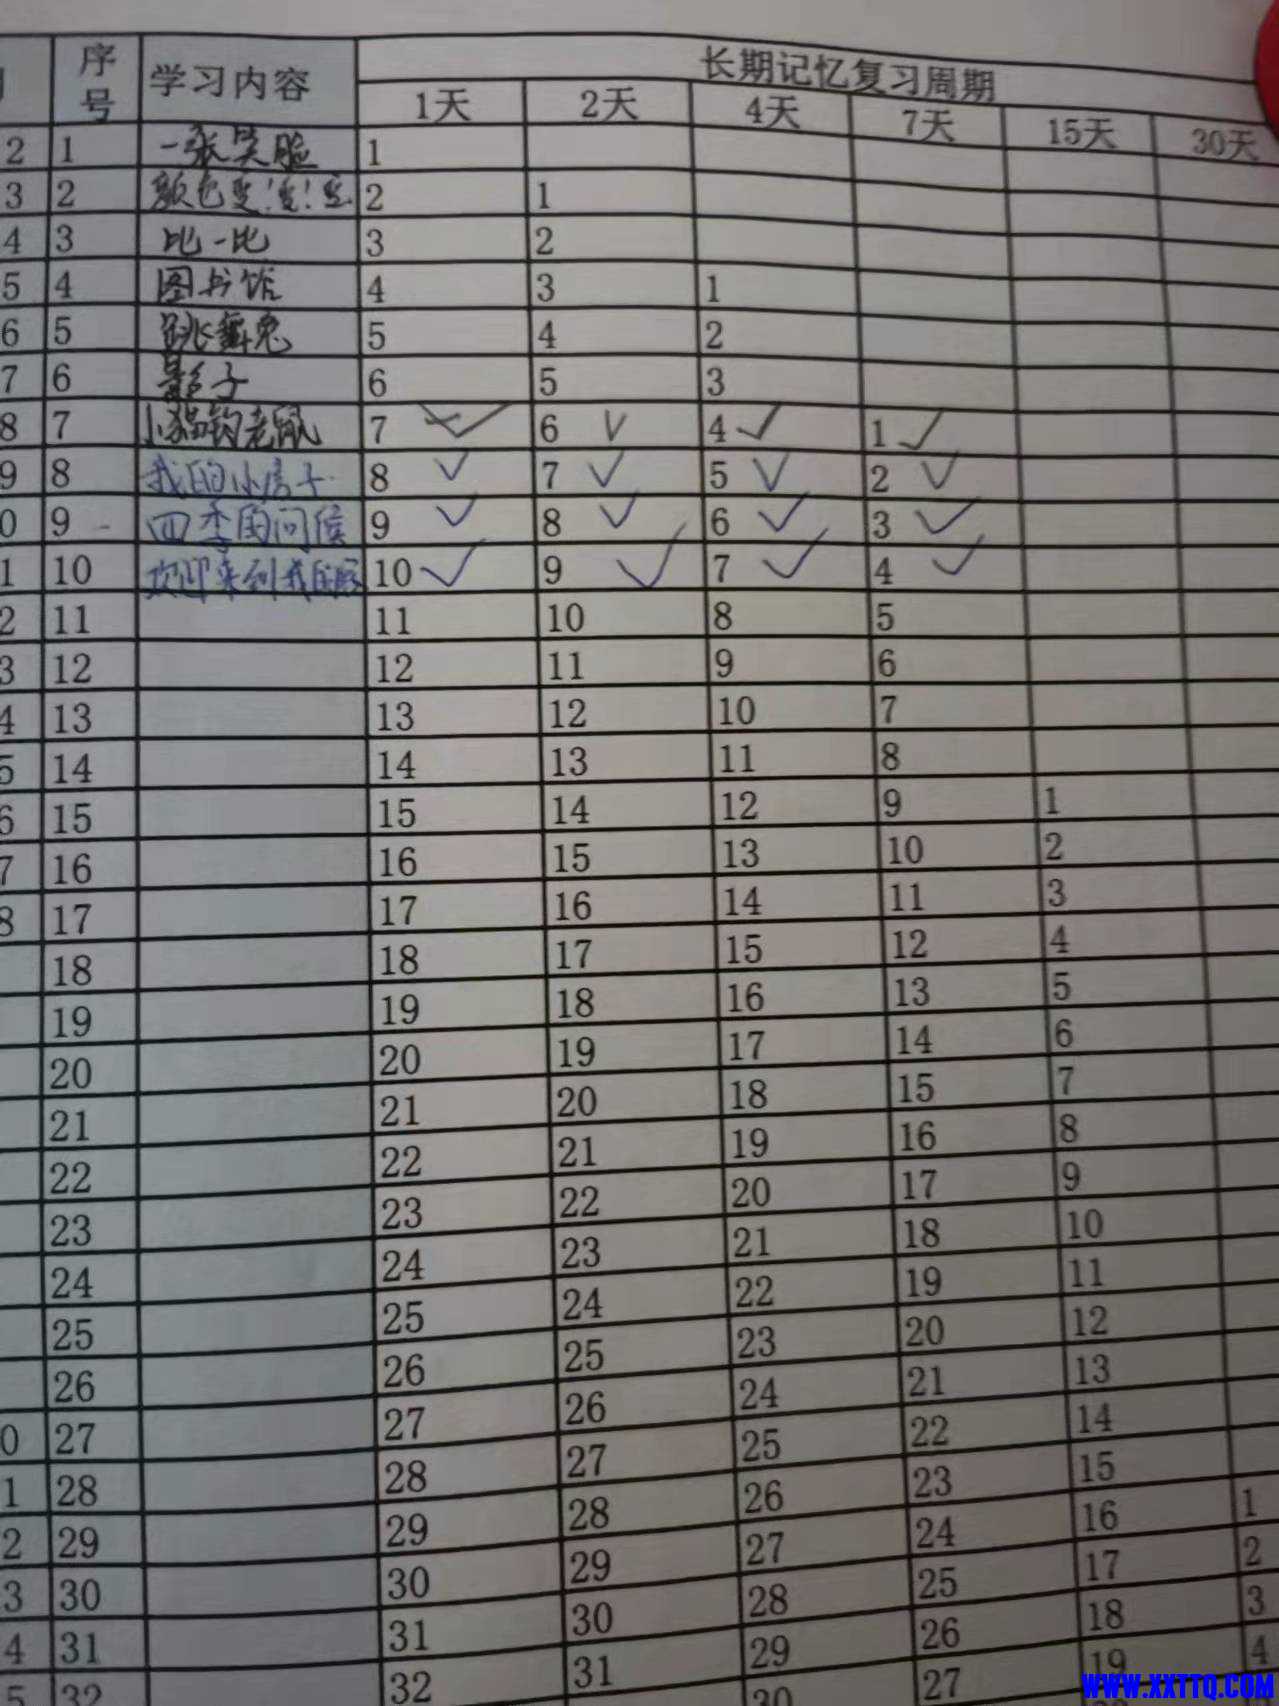 序号 学习内容 长期记忆复习周期
1天 2天 4天 7天 15天 30天
2 1 一张笑脸 1
3 2 颜色变!变!变 2 1
4 3 比一比 3 2
5 4 图书馆 4 3 1
6 5 跳舞兔 5 4 2
7 6 影子 6 5 3
8 7 小猫钓老鼠 7 6 4 1
9 8 我的小房子 8 7 5 2
0 9 四季的问候 9 8 6 3
1 10 欢迎来到我的 10 9 7 4
2 11 11 10 8 5
3 12 12 11 9 6
4 13 13 12 10 7
5 14 14 13 11 8
6 15 15 14 12 9 1
7 16 16 15 13 10 2
8 17 17 16 14 11 3
18 18 17 15 12 4
19 19 18 16 13 5
20 20 19 17 14 6
21 21 20 18 15 7
22 22 21 19 16 8
23 23 22 20 17 9
24 24 23 21 18 10
25 25 24 22 19 11
26 26 25 23 20 12
0 27 27 26 24 21 13
1 28 28 27 25 22 14
2 29 29 28 26 23 15
3 30 30 29 27 24 16 1
4 31 31 30 28 25 17 2
5 32 32 31 29 26 18 3
30 27 19 4
WWW.XXTTQ.COM